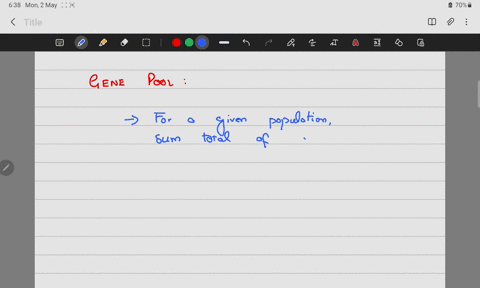 6:38 Mon, 2 May
70%
Title
GENE POOL :
→ For a given population,
sum total of